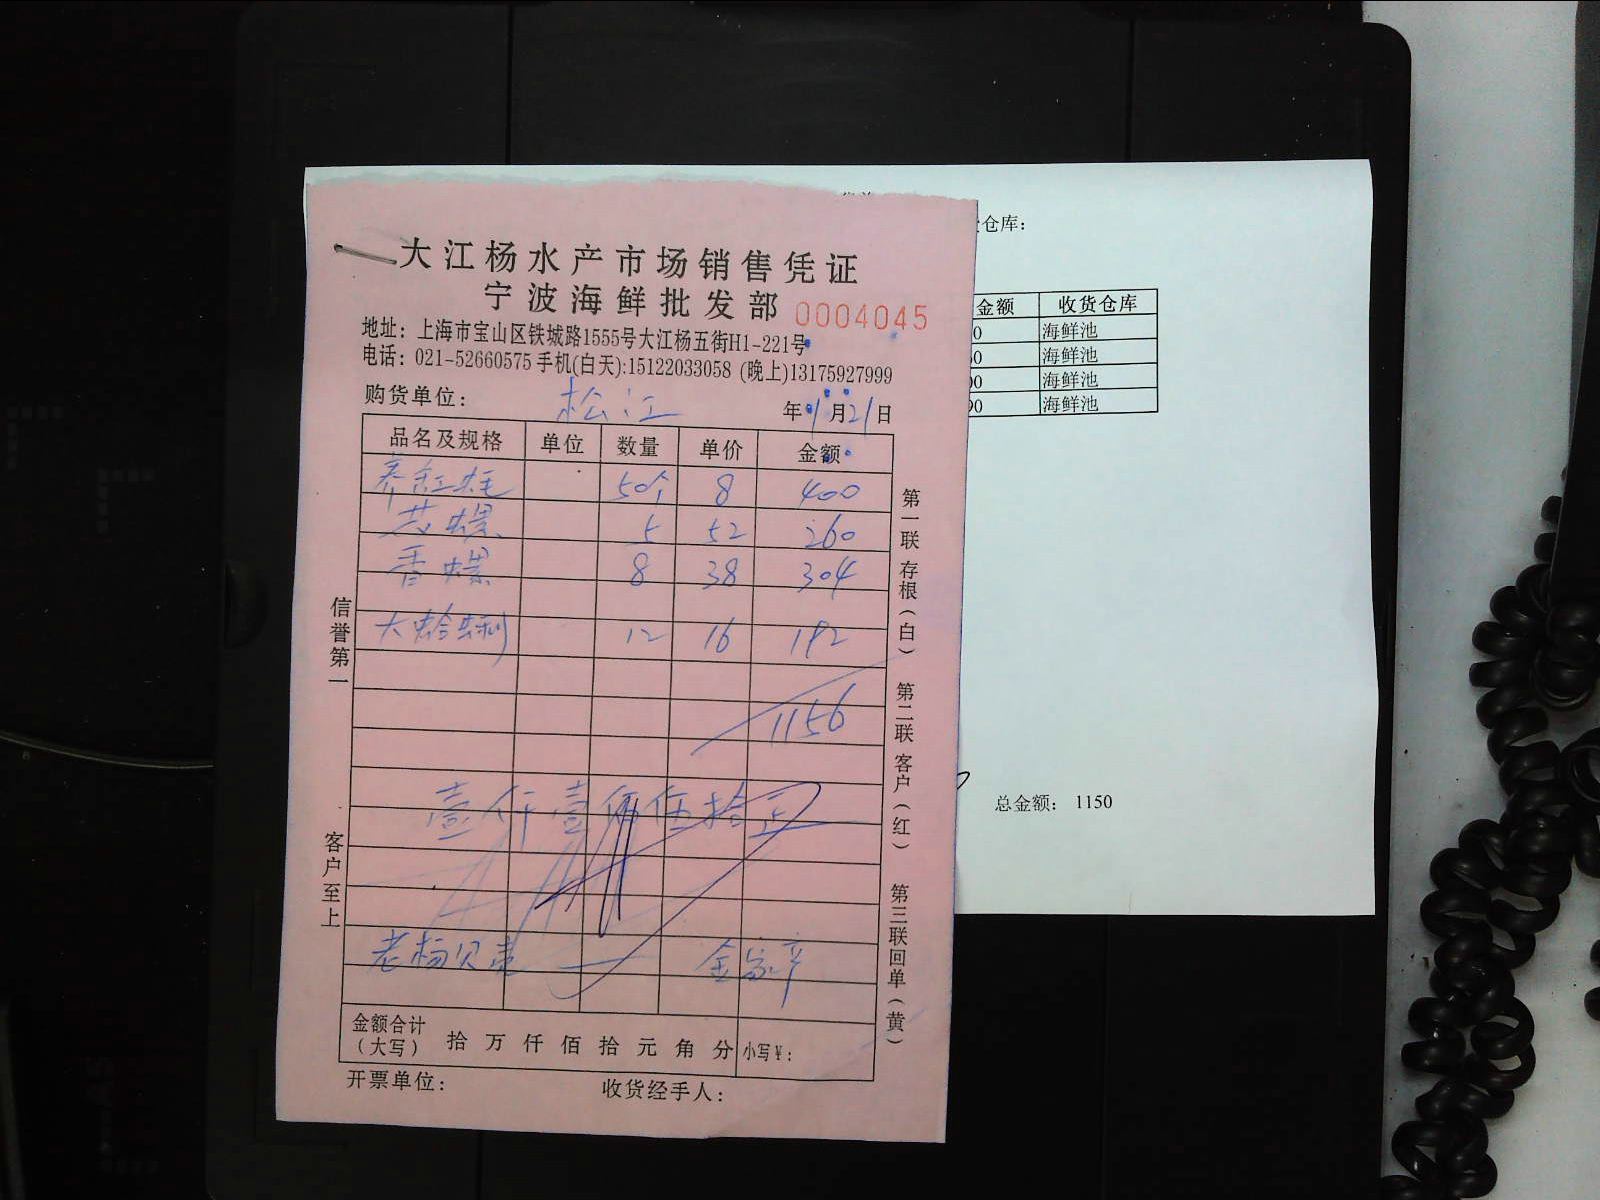 大江杨水产市场销售凭证
宁波海鲜批发部 0004045
地址：上海市宝山区铁城路1555号大江杨五街H1-221号
电话：021-52660575 手机(白天):15122033058 (晚上)13175927999
购货单位： 松江 年 9月21日
品名及规格 单位 数量 单价 金额
养红虾 50个 8 400
花螺 5 52 260
香螺 8 38 304
大蛤蜊 12 16 192
1156
壹仟壹佰伍拾正
老杨贝壳
金额合计（大写） 拾 万 仟 佰 拾 元 角 分 小写￥：
开票单位： 收货经手人：
信誉第一
客户至上
第一联 存根（白） 第二联 客户（红） 第三联 回单（黄）
仓库：
金额 收货仓库
0 海鲜池
0 海鲜池
00 海鲜池
90 海鲜池
总金额： 1150